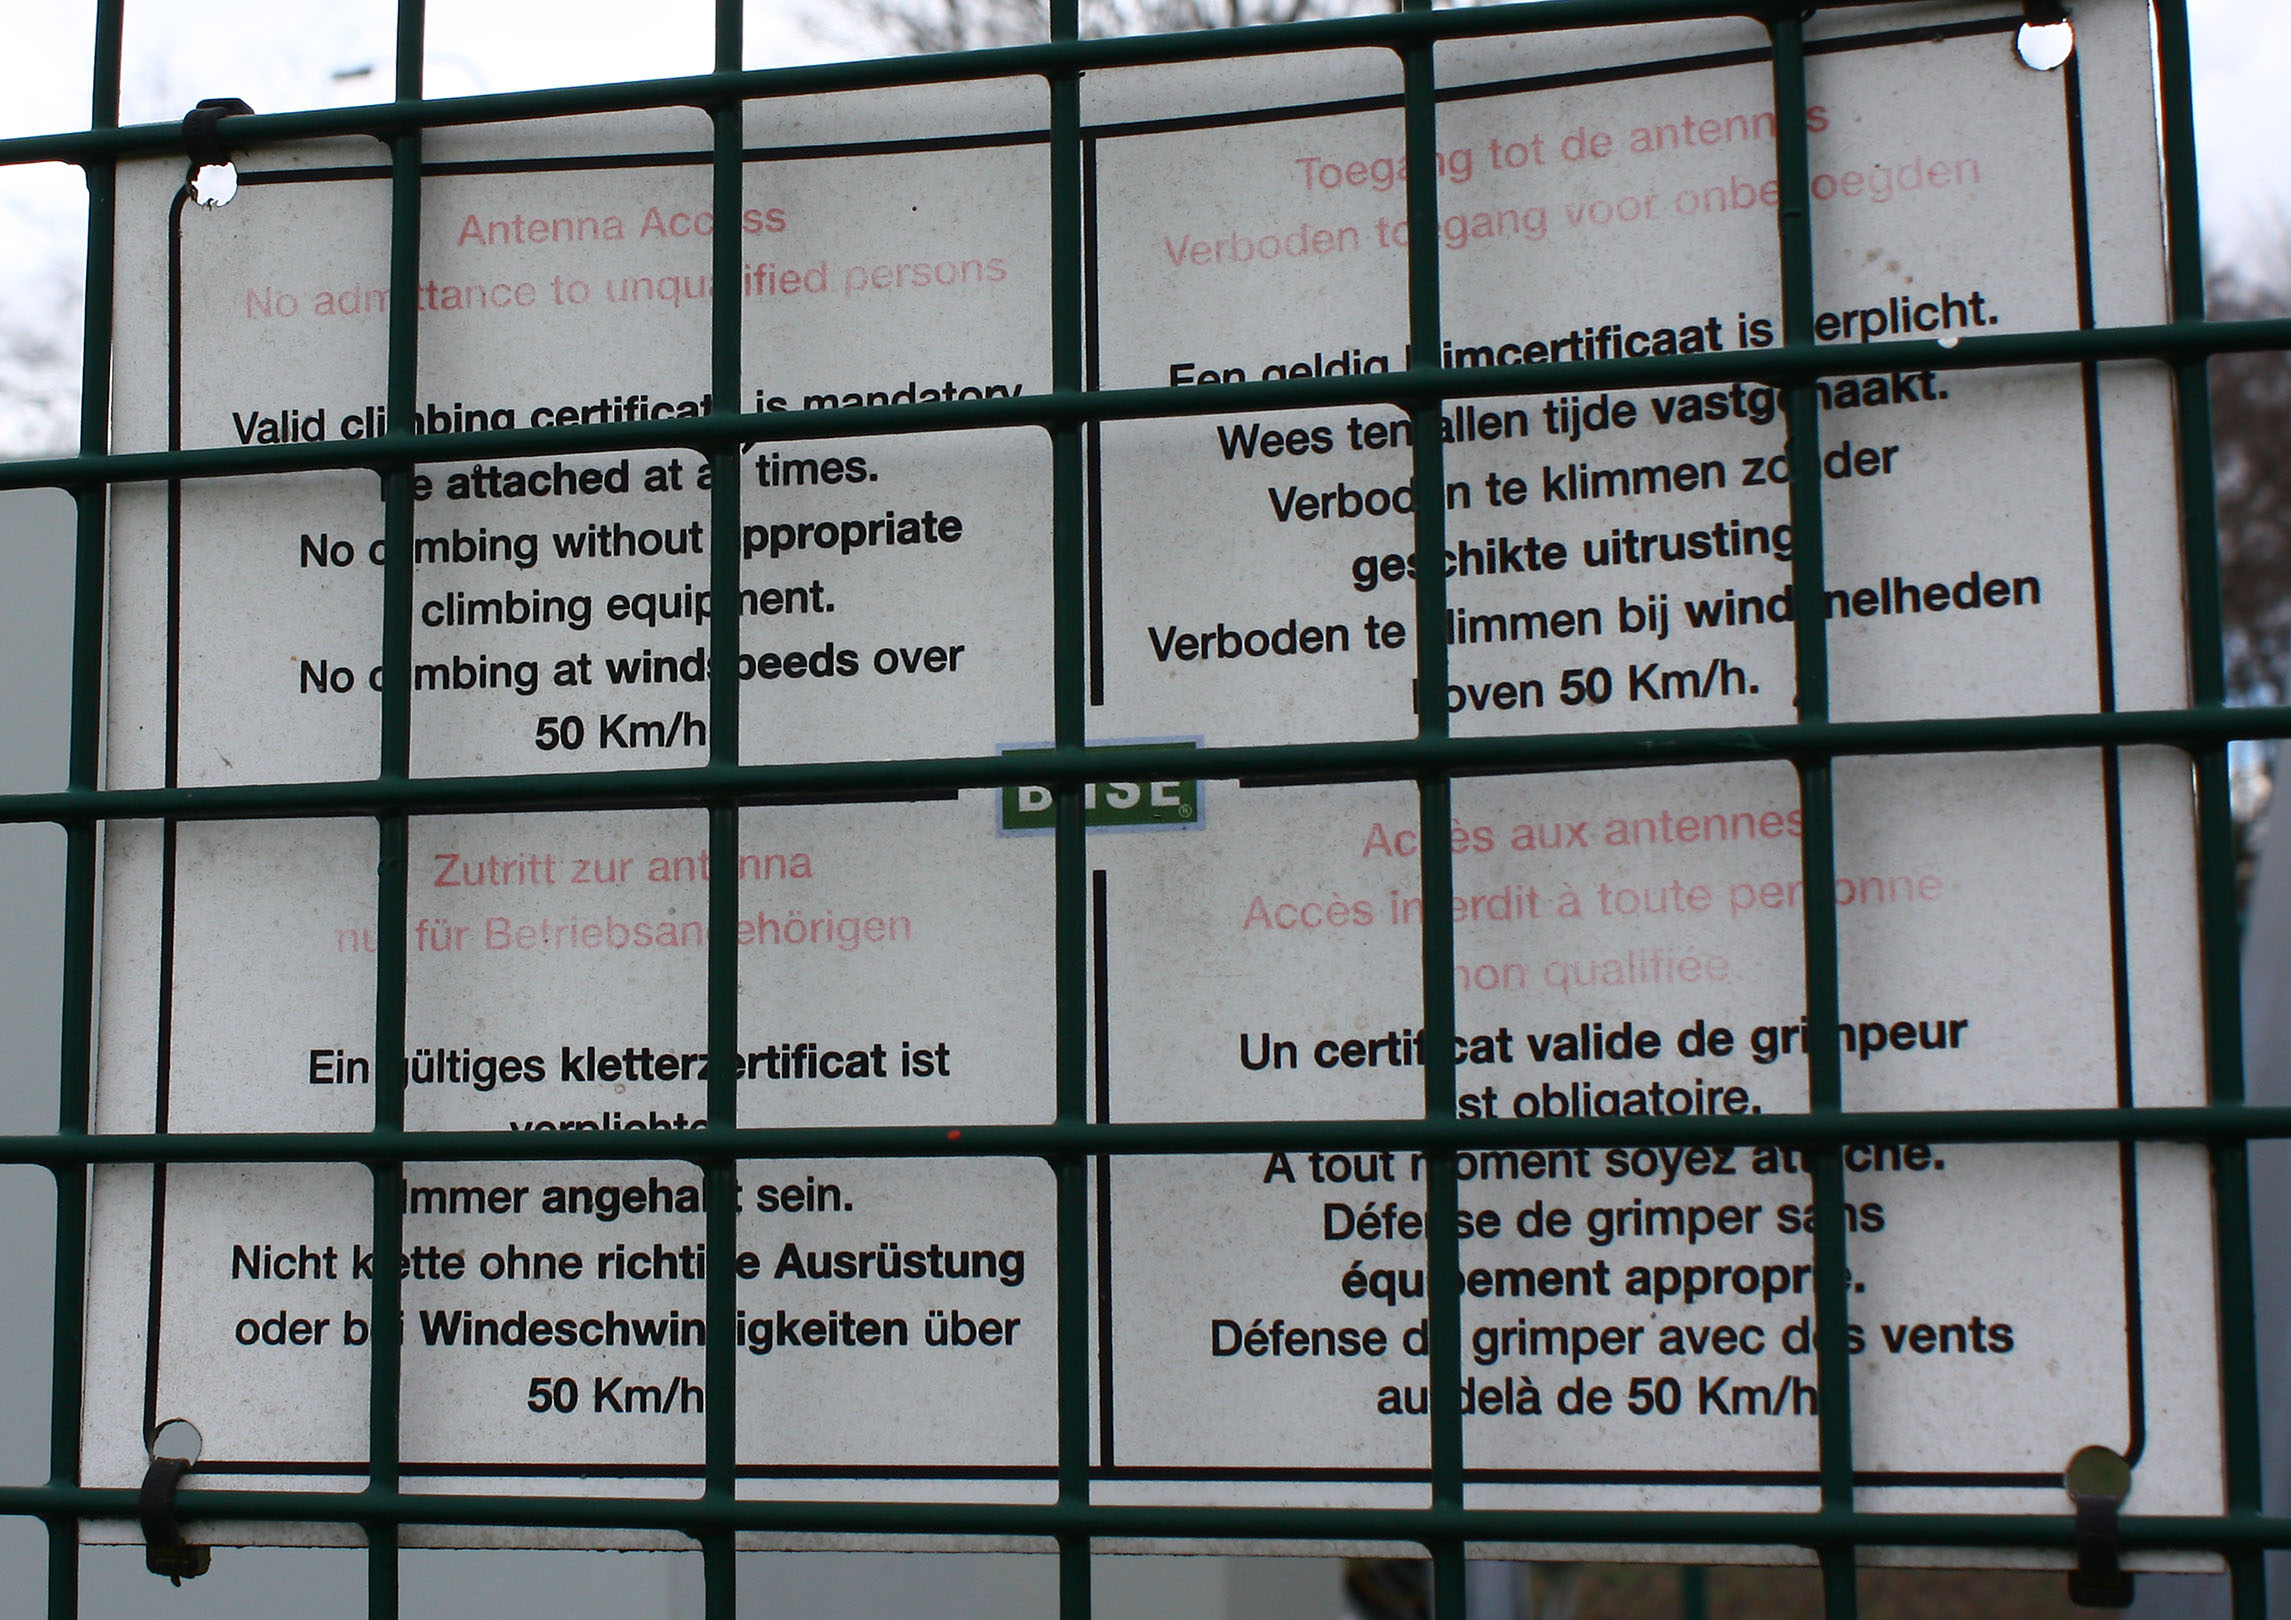 Antenna Access
No admittance to unqualified persons
Valid climbing certificate is mandatory
be attached at all times.
No climbing without appropriate
climbing equipment.
No climbing at windspeeds over
50 Km/h
Toegang tot de antennes
Verboden toegang voor onbevoegden
Een geldig klimcertificaat is verplicht.
Wees ten allen tijde vastgemaakt.
Verboden te klimmen zonder
geschikte uitrusting
Verboden te klimmen bij windsnelheden
boven 50 Km/h.
BASE
Zutritt zur antenna
nur für Betriebsangehörigen
Ein gültiges kletterzertificat ist
Immer angehakt sein.
Nicht klette ohne richtige Ausrüstung
oder bei Windeschwindigkeiten über
50 Km/h
Accès aux antennes
Accès interdit à toute personne
non qualifiée
Un certificat valide de grimpeur
est obligatoire.
A tout moment soyez attaché.
Défense de grimper sans
équipement approprié.
Défense de grimper avec des vents
au delà de 50 Km/h